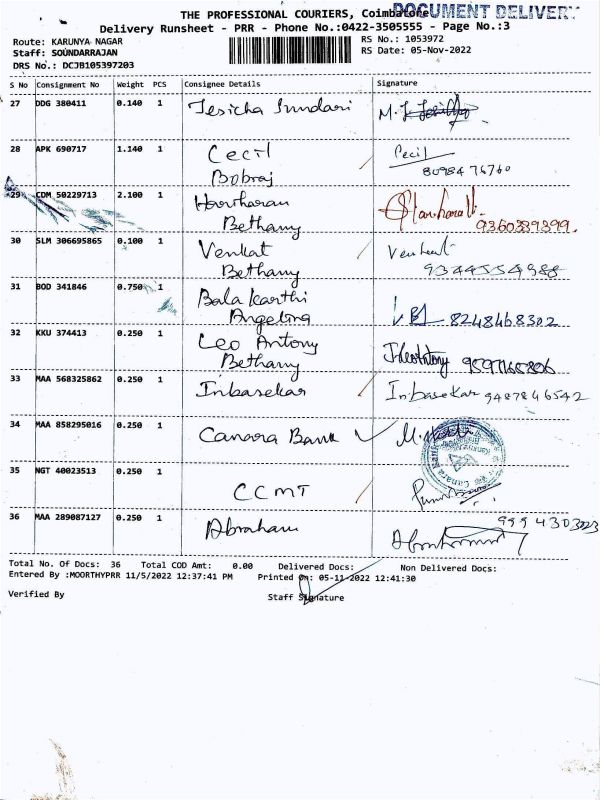 THE PROFESSIONAL COURIERS, Coimbatore
DOCUMENT DELIVERY
Delivery Runsheet - PRR - Phone No.:0422-3505555 - Page No.:3
Route: KARUNYA NAGAR
RS No.: 1053972
Staff: SOUNDARRAJAN
RS Date: 05-Nov-2022
DRS No.: DCJB105397203
S No Consignment No Weight PCS Consignee Details Signature
27 DDG 380411 0.140 1 Jesicha Sundari M.
28 APK 690717 1.140 1 Cecil Cecil
Bobraj 8098476760
29 CDM 50229713 2.100 1 Hariharan
Bethany 9360389399.
30 SLM 306695865 0.100 1 Venkat Venkat
Bethany 9344554988
31 BOD 341846 0.750 1 Bala Karthi
Angelina 8248468302
32 KKU 374413 0.250 1 Leo Antony
Bethany
33 MAA 568325862 0.250 1 Inbasekar Inbasekar 9487846542
34 MAA 858295016 0.250 1 Canara Bank
35 NGT 40023513 0.250 1 CCMT
36 MAA 289087127 0.250 1 Abraham
Total No. Of Docs: 36 Total COD Amt: 0.00 Delivered Docs: Non Delivered Docs:
Entered By :MOORTHYPRR 11/5/2022 12:37:41 PM Printed On: 05-11-2022 12:41:30
Verified By Staff Signature